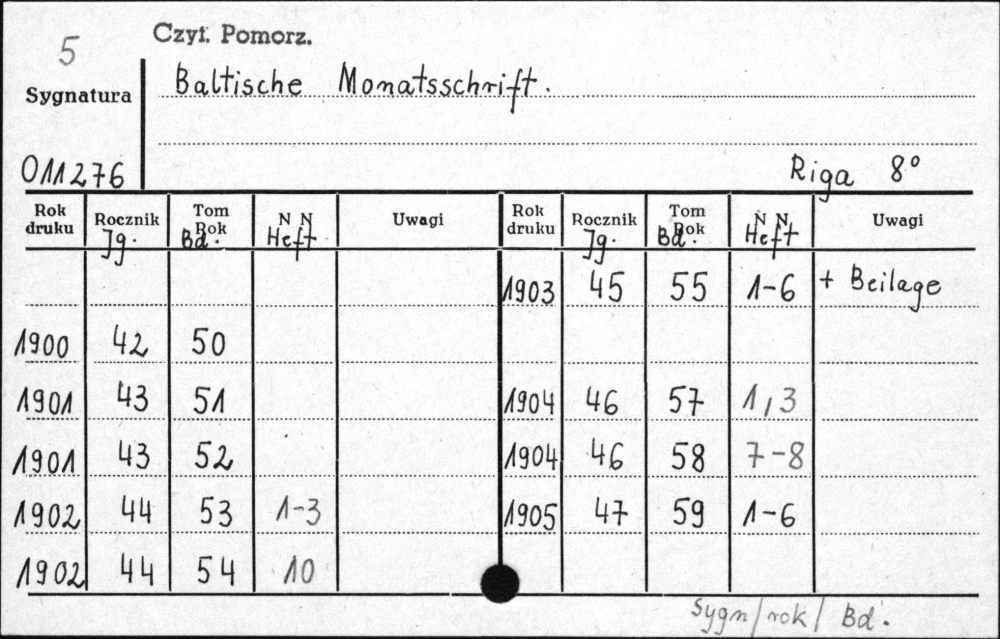 5
Czyt. Pomorz.
Sygnatura
Baltische Monatsschrift.
011276
Riga 8°
Rok druku Rocznik Jg. Tom Rok Bd. N N Heft Uwagi Rok druku Rocznik Jg. Tom Rok Bd. N N Heft Uwagi
1903 45 55 1-6 + Beilage
1900 42 50
1901 43 51 1904 46 57 1,3
1901 43 52 1904 46 58 7-8
1902 44 53 1-3 1905 47 59 1-6
1902 44 54 10
Sygn/rok/ Bd.